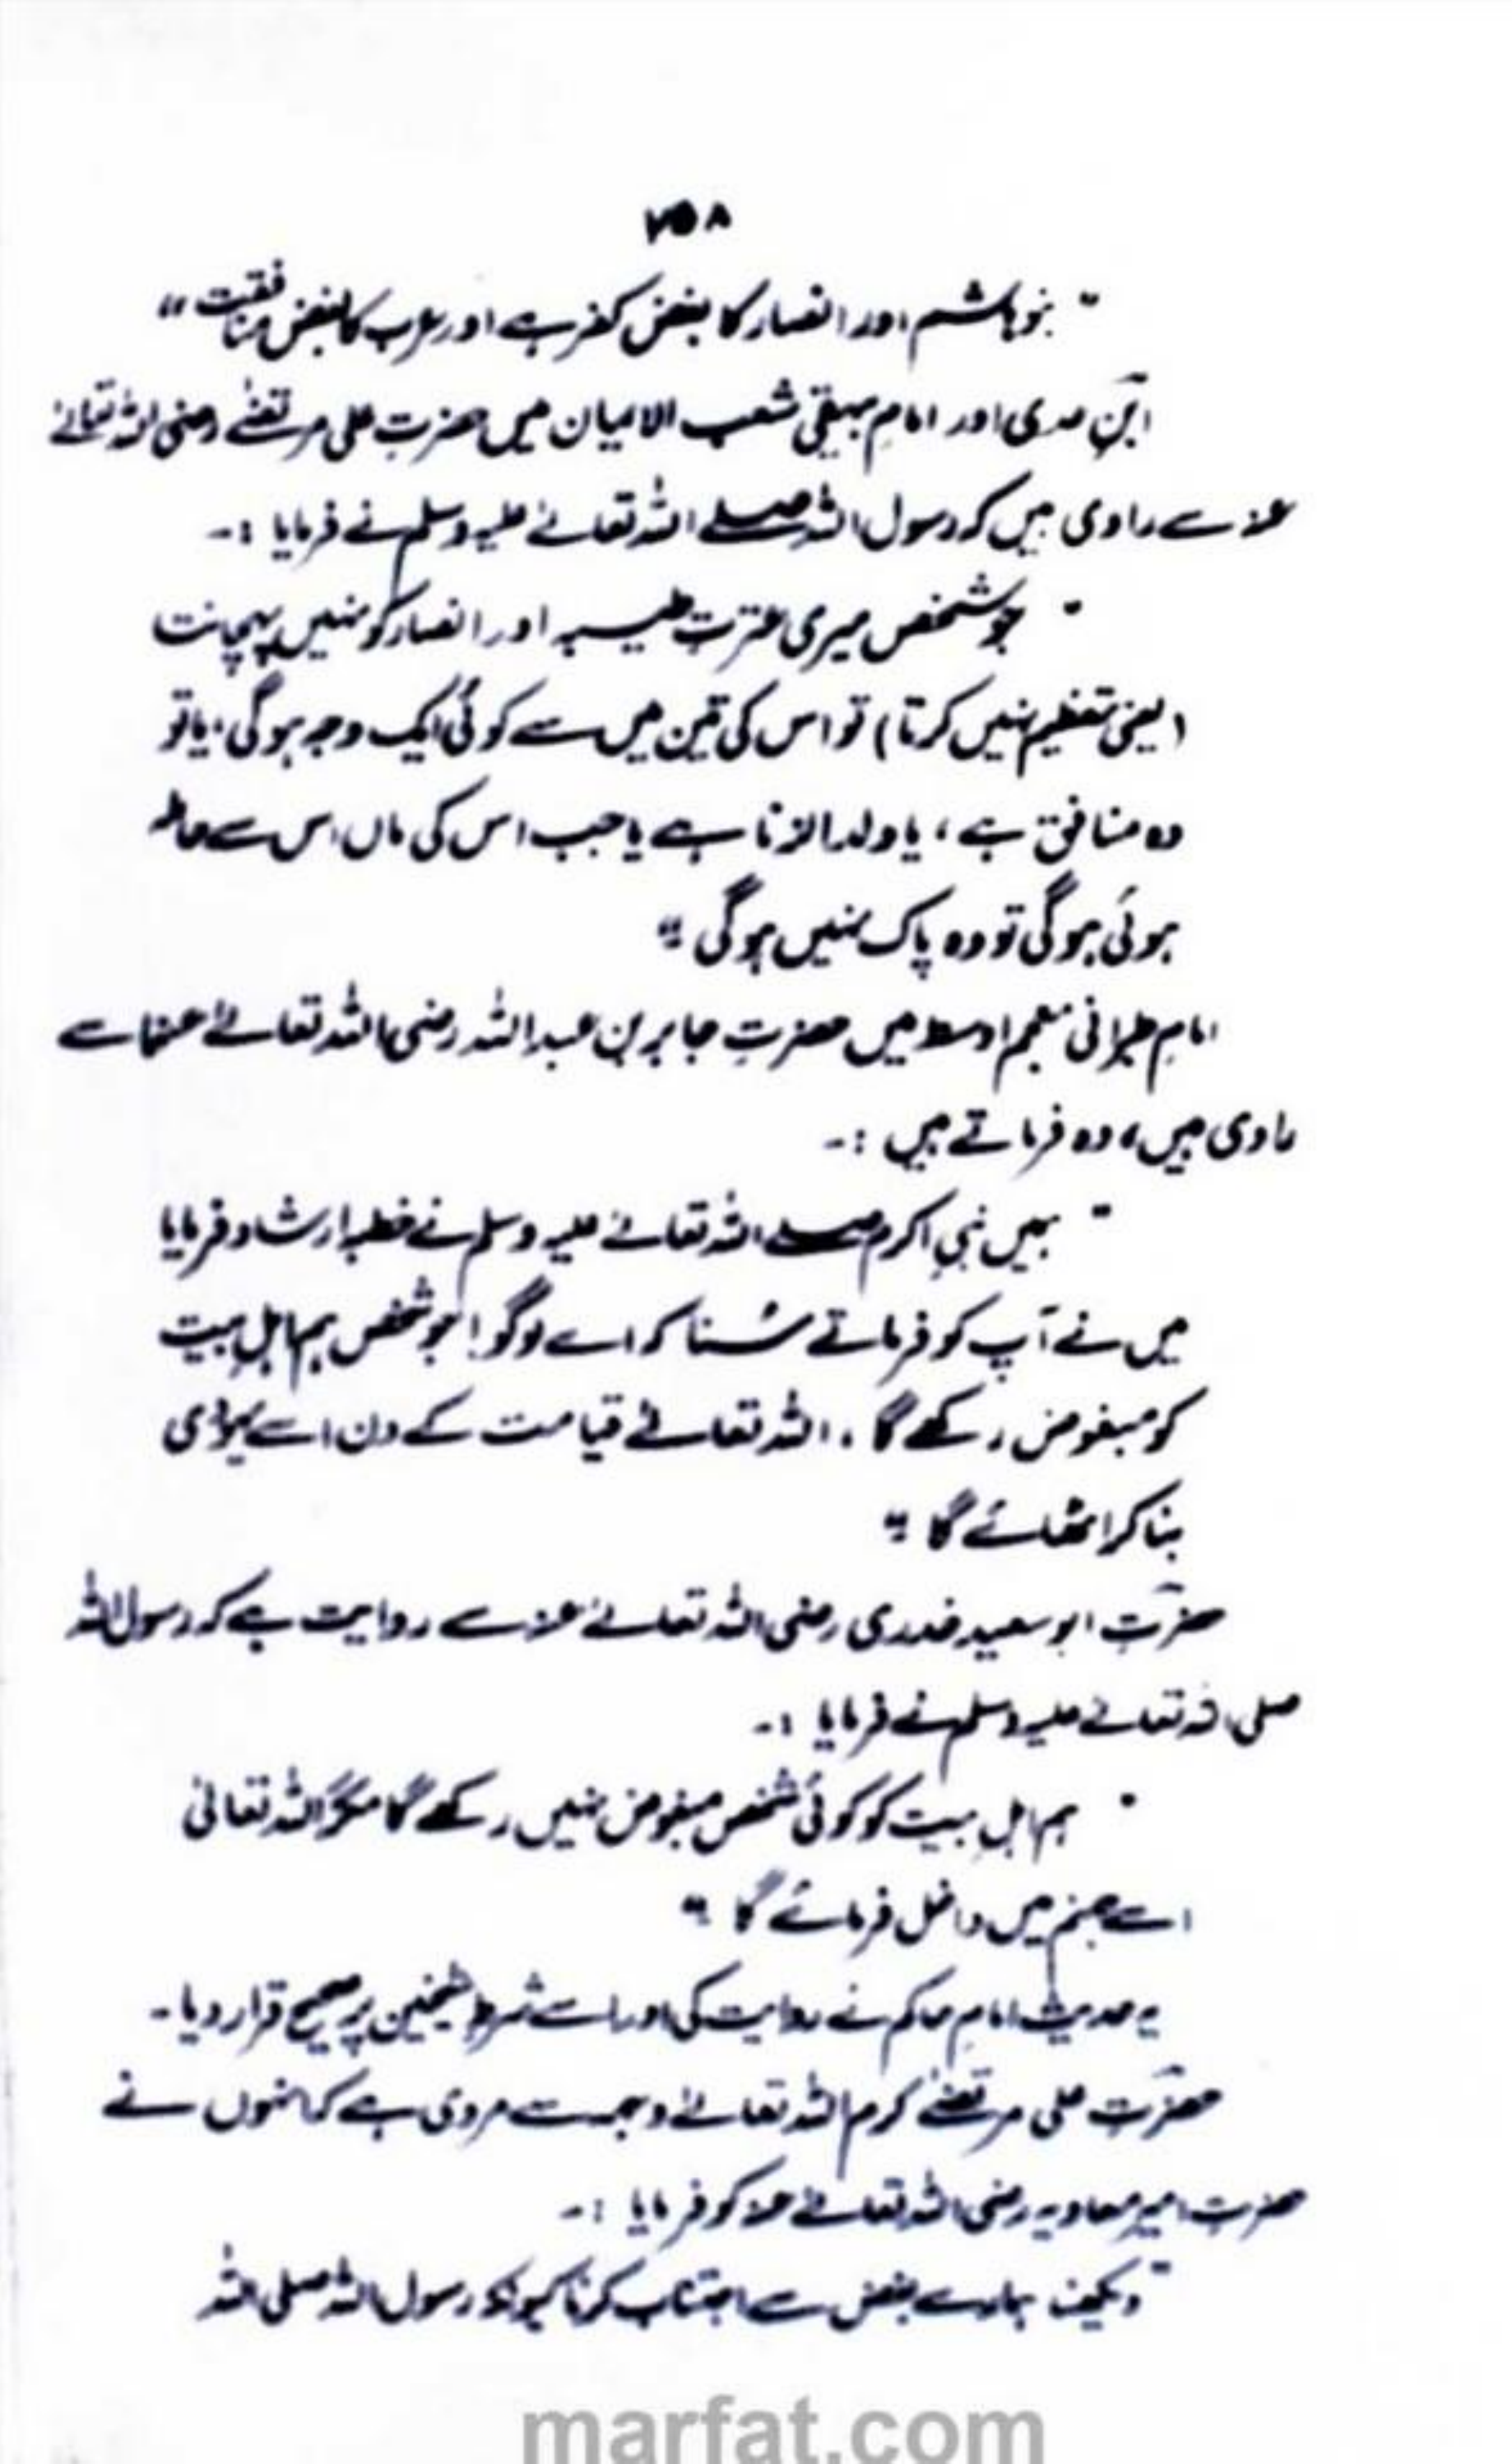 ۷۵۸
"بنو ہاشم اور انصار کا بغض کفر ہے اور عرب کا بغض منافقت"
ابنِ عدی اور امامِ بیہقی شعب الایمان میں حضرت علی مرتضٰے رضی اللہ تعالےٰ
عنہ سے راوی ہیں کہ رسول اللہ صلے اللہ تعالےٰ علیہ وسلم نے فرمایا :۔
"جو شخص میری عترتِ طیبہ اور انصار کو نہیں پہچانت
(یعنی تعظیم نہیں کرتا) تو اس کی تین میں سے کوئی ایک وجہ ہوگی، یا تو
وہ منافق ہے، یا ولد الزنا ہے یا جب اس کی ماں اس سے حاملہ
ہوئی ہوگی تو وہ پاک نہیں ہوگی۔"
امامِ طبرانی معجم اوسط میں حضرتِ جابر بن عبداللہ رضی اللہ تعالےٰ عنہما سے
راوی ہیں، وہ فرماتے ہیں :۔
"ہمیں نبیِ اکرم صلے اللہ تعالےٰ علیہ وسلم نے خطبہ ارشاد فرمایا
میں نے آپ کو فرماتے سُنا کہ اے لوگو! جو شخص ہم اہلِ بیت
کو مبغوض رکھے گا، اللہ تعالےٰ قیامت کے دن اسے یہودی
بنا کر اٹھائے گا۔"
حضرتِ ابو سعید خدری رضی اللہ تعالےٰ عنہ سے روایت ہے کہ رسول اللہ
صلی اللہ تعالےٰ علیہ وسلم نے فرمایا :۔
"ہم اہلِ بیت کو کوئی شخص مبغوض نہیں رکھے گا مگر اللہ تعالیٰ
اسے جہنم میں داخل فرمائے گا۔"
یہ حدیث امامِ حاکم نے روایت کی اور اسے شرطِ شیخین پر صحیح قرار دیا۔
حضرتِ علی مرتضٰے کرم اللہ تعالےٰ وجہہ سے مروی ہے کہ انہوں نے
حضرت امیر معاویہ رضی اللہ تعالےٰ عنہ کو فرمایا :۔
"دیکھنا ہمارے بغض سے اجتناب کرنا کیونکہ رسول اللہ صلی اللہ
marfat.com